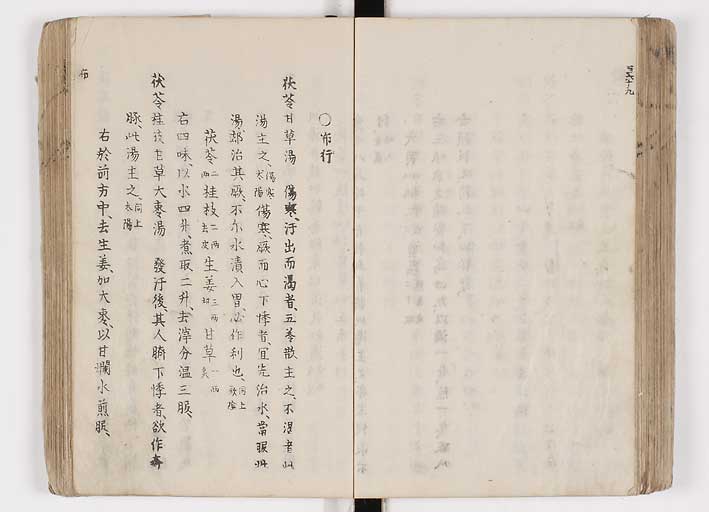 〇布行
茯苓甘草湯　傷寒、汗出而渴者、五苓散主之、不渴者此
湯主之、傷寒太陽 傷寒、厥而心下悸者、宜先治水、當服此
湯、却治其厥、不尔水漬入胃、必作利也、同上厥陰
茯苓二兩 桂枝二兩去皮 生姜三兩切 甘草一兩炙
右四味、以水四升、煮取二升、去滓、分温三服、
茯苓桂枝甘草大棗湯　發汗後其人臍下悸者、欲作奔
豚、此湯主之、同上太陽
右於前方中、去生姜、加大棗、以甘瀾水煎服、
布